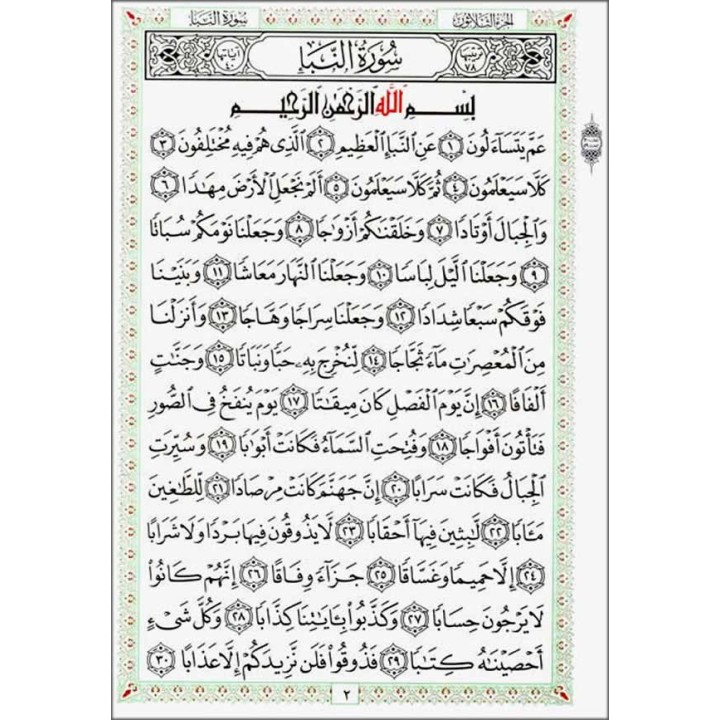 الجزء الثلاثون
سورة النبإ
ترتيبها ٧٨
سُورَةُ النَّبَإِ
آياتها ٤٠
بِسْمِ اللَّهِ الرَّحْمَٰنِ الرَّحِيمِ
عَمَّ يَتَسَاءَلُونَ ١ عَنِ النَّبَإِ الْعَظِيمِ ٢ الَّذِي هُمْ فِيهِ مُخْتَلِفُونَ ٣
كَلَّا سَيَعْلَمُونَ ٤ ثُمَّ كَلَّا سَيَعْلَمُونَ ٥ أَلَمْ نَجْعَلِ الْأَرْضَ مِهَٰدًا ٦
وَالْجِبَالَ أَوْتَادًا ٧ وَخَلَقْنَٰكُمْ أَزْوَٰجًا ٨ وَجَعَلْنَا نَوْمَكُمْ سُبَاتًا
٩ وَجَعَلْنَا الَّيْلَ لِبَاسًا ١٠ وَجَعَلْنَا النَّهَارَ مَعَاشًا ١١ وَبَنَيْنَا
فَوْقَكُمْ سَبْعًا شِدَادًا ١٢ وَجَعَلْنَا سِرَاجًا وَهَّاجًا ١٣ وَأَنزَلْنَا
مِنَ الْمُعْصِرَٰتِ مَاءً ثَجَّاجًا ١٤ لِّنُخْرِجَ بِهِۦ حَبًّا وَنَبَاتًا ١٥ وَجَنَّٰتٍ
أَلْفَافًا ١٦ إِنَّ يَوْمَ الْفَصْلِ كَانَ مِيقَٰتًا ١٧ يَوْمَ يُنفَخُ فِي الصُّورِ
فَتَأْتُونَ أَفْوَاجًا ١٨ وَفُتِحَتِ السَّمَاءُ فَكَانَتْ أَبْوَٰبًا ١٩ وَسُيِّرَتِ
الْجِبَالُ فَكَانَتْ سَرَابًا ٢٠ إِنَّ جَهَنَّمَ كَانَتْ مِرْصَادًا ٢١ لِّلطَّٰغِينَ
مَـَٔابًا ٢٢ لَّٰبِثِينَ فِيهَا أَحْقَابًا ٢٣ لَّا يَذُوقُونَ فِيهَا بَرْدًا وَلَا شَرَابًا
٢٤ إِلَّا حَمِيمًا وَغَسَّاقًا ٢٥ جَزَاءً وِفَاقًا ٢٦ إِنَّهُمْ كَانُوا
لَا يَرْجُونَ حِسَابًا ٢٧ وَكَذَّبُوا بِـَٔايَٰتِنَا كِذَّابًا ٢٨ وَكُلَّ شَيْءٍ
أَحْصَيْنَٰهُ كِتَٰبًا ٢٩ فَذُوقُوا فَلَن نَّزِيدَكُمْ إِلَّا عَذَابًا ٣٠
٢